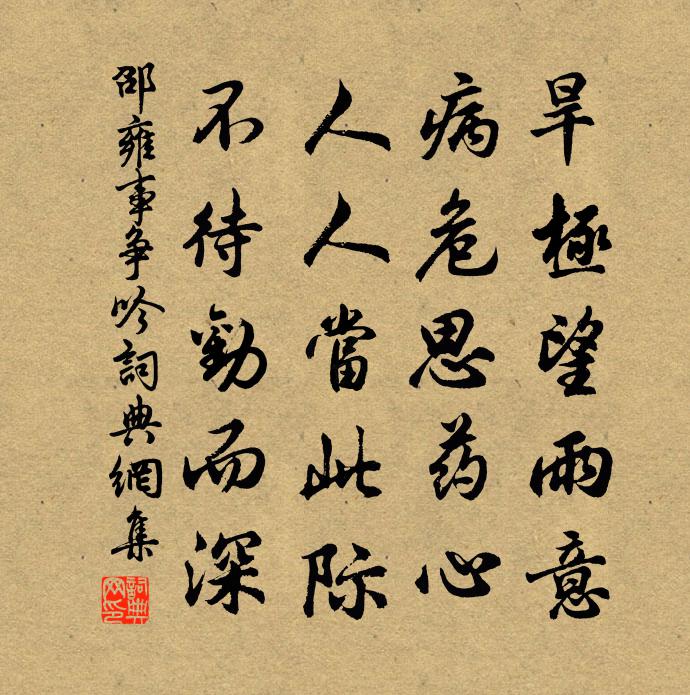 旱極望雨意
病危思药心
人人當此际
不待勸而深
邵雍事争吟詞典網集
詞典网印